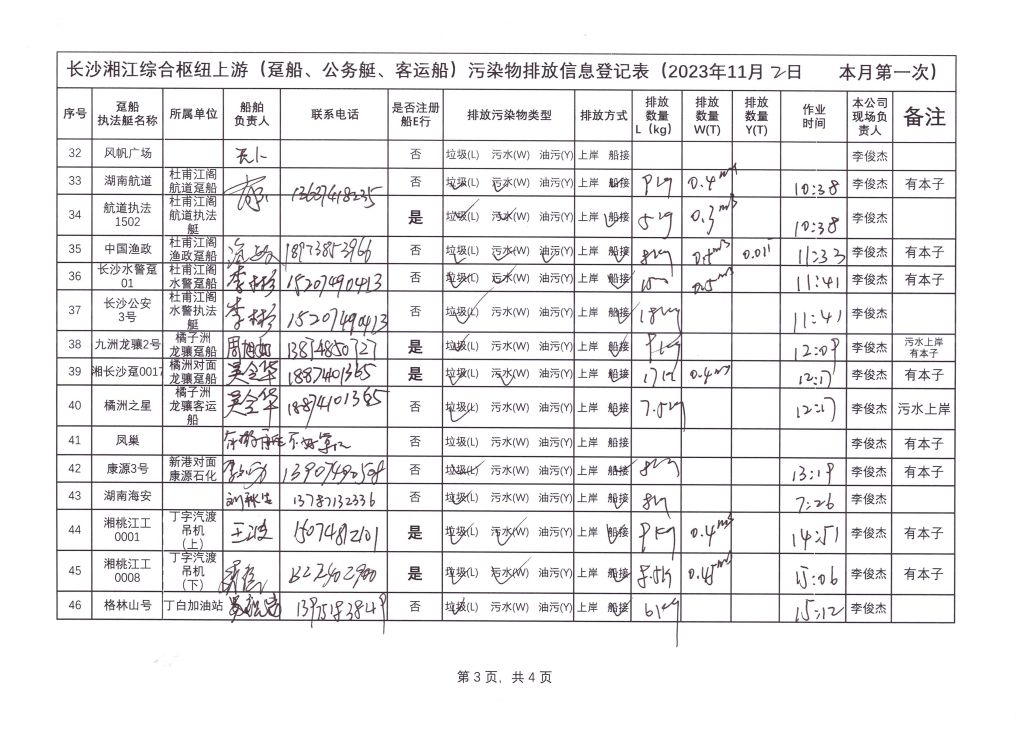 长沙湘江综合枢纽上游（趸船、公务艇、客运船）污染物排放信息登记表（2023年11月2日 本月第一次）
序号 趸船执法艇名称 所属单位 船舶负责人 联系电话 是否注册船E行 排放污染物类型 排放方式 排放数量L（kg） 排放数量W(T) 排放数量Y(T) 作业时间 本公司现场负责人 备注
32 风帆广场 否 垃圾(L) 污水(W) 油污(Y) 上岸 船接 李俊杰
33 湖南航道 杜甫江阁航道趸船 13607418235 否 垃圾(L) 污水(W) 油污(Y) 上岸 船接 9kg 0.4m3 10:38 李俊杰 有本子
34 航道执法1502 杜甫江阁航道执法艇 是 垃圾(L) 污水(W) 油污(Y) 上岸 船接 5kg 0.3m3 10:38 李俊杰
35 中国渔政 杜甫江阁渔政趸船 18973853966 否 垃圾(L) 污水(W) 油污(Y) 上岸 船接 8kg 11:33 李俊杰 有本子
36 长沙水警趸01 杜甫江阁水警趸船 李彬 15207490413 否 垃圾(L) 污水(W) 油污(Y) 上岸 船接 0.5m3 11:41 李俊杰 有本子
37 长沙公安3号 杜甫江阁水警执法艇 李彬 15207490413 否 垃圾(L) 污水(W) 油污(Y) 上岸 船接 18kg 11:41 李俊杰
38 九洲龙骧2号 橘子洲龙骧趸船 13874850727 是 垃圾(L) 污水(W) 油污(Y) 上岸 船接 9kg 12:09 李俊杰 污水上岸有本子
39 湘长沙趸0017 橘洲对面龙骧趸船 吴全华 18874101365 是 垃圾(L) 污水(W) 油污(Y) 上岸 船接 0.4m3 12:17 李俊杰 有本子
40 橘洲之星 橘子洲龙骧客运船 吴全华 18874101365 否 垃圾(L) 污水(W) 油污(Y) 上岸 船接 7.5kg 12:17 李俊杰 污水上岸
41 凤巢 否 垃圾(L) 污水(W) 油污(Y) 上岸 船接 李俊杰 有本子
42 康源3号 新港对面康源石化 否 垃圾(L) 污水(W) 油污(Y) 上岸 船接 8kg 13:19 李俊杰 有本子
43 湖南海安 13787132336 否 垃圾(L) 污水(W) 油污(Y) 上岸 船接 8kg 7:26 李俊杰
44 湘桃江工0001 丁字汽渡吊机（上） 15074812101 是 垃圾(L) 污水(W) 油污(Y) 上岸 船接 9kg 0.4m3 14:51 李俊杰 有本子
45 湘桃江工0008 丁字汽渡吊机（下） 是 垃圾(L) 污水(W) 油污(Y) 上岸 船接 8.5kg 0.45m3 15:06 李俊杰 有本子
46 格林山号 丁白加油站 13975183849 否 垃圾(L) 污水(W) 油污(Y) 上岸 船接 6kg 15:12 李俊杰
第 3 页，共 4 页